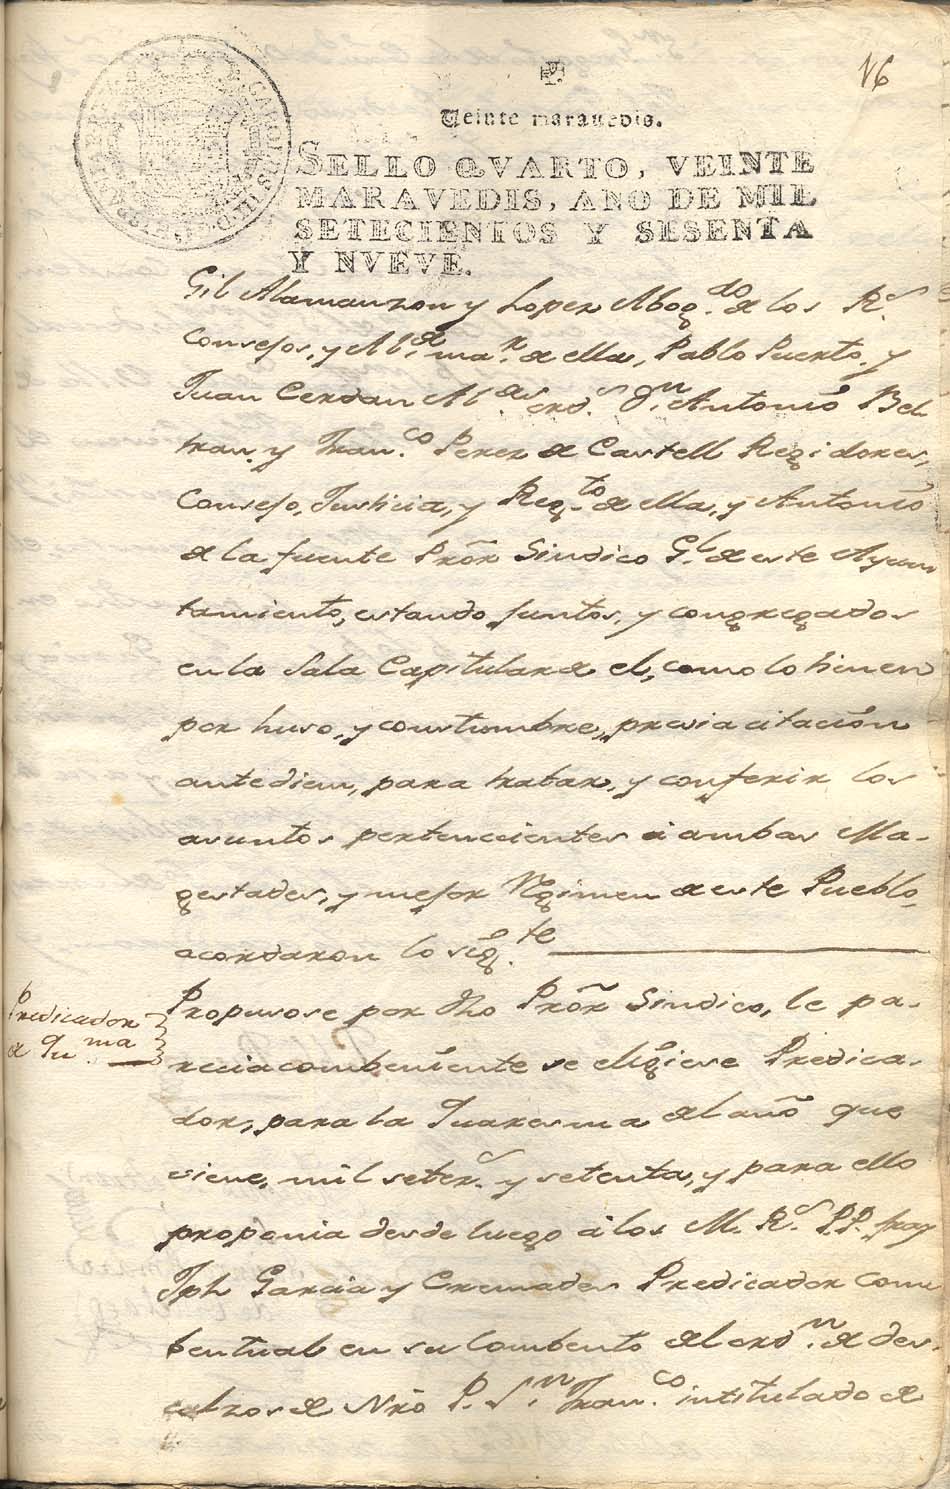 16
Veinte maravedis.
SELLO QVARTO, VEINTE
MARAVEDIS, AÑO DE MIL
SETECIENTOS Y SESENTA
Y NVEVE.
Gil Alamanzon y Lopez Abog.do de los R.s
Consejos, y Al.e ma.r de ella, Pablo Puerto, y
Juan Cerdan Al.des ord.s D.n Antonio Bel
tran, y Fran.co Perez de Castell Regidores,
Consejo, Justicia, y Reg.to de ella, y Antonio
de la fuente Prõr Sindico G.l de este Ayun
tamiento, estando juntos, y congregados
en la Sala Capitular de el, como lo tienen
por huso, y constumbre, previa citacion
antediem, para tratar, y conferir los
asuntos pertenecientes a ambas Ma-
gestades, y mejor Regimen de este Pueblo,
acordaron lo sig.te
Predicador
de Qu.ma
Propusose por dho Prõr Sindico, le pa-
recia combeniente se eligiese Predica-
dor, para la Quaresma del año que
viene, mil seter.s y setenta, y para ello
proponia desde luego a los M. R.s P.P. fray
Jph Garcia y Cremades Predicador com
bentual en su Combento del ord.n de des-
calzos de Nrõ P. S.n Fran.co intitulado de